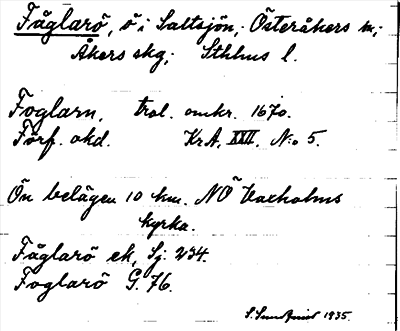 Fåglarö, ö i Saltsjön, Österåkers sn;
Åkers skg; Sthlms l.
Foglarn, trol. omkr. 1670.
Förf. okd. KrA, XXII, N:o 5.
Ön belägen 10 km. NÖ Vaxholms
kyrka.
Fåglarö ek, Sj. 234.
Foglarö G. 76.
1935.